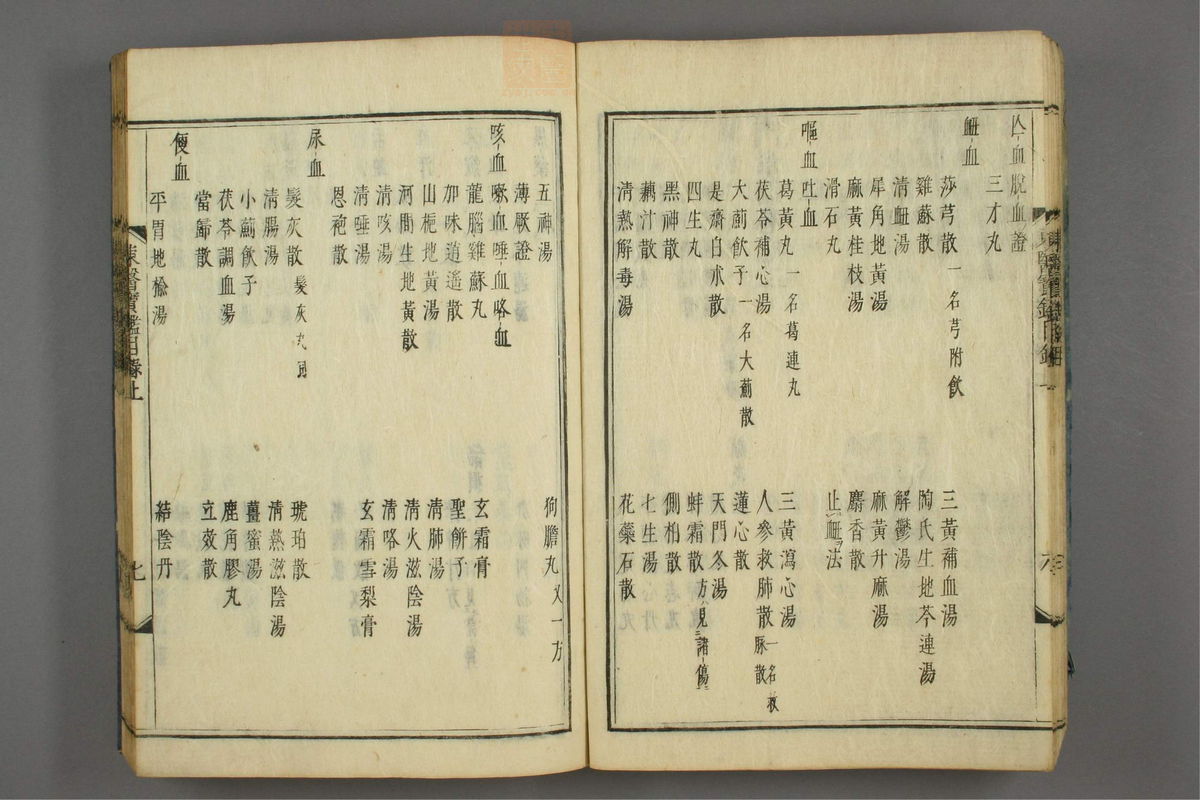 亼血脫血證
三才丸
衄血
莎芎散 一名芎附飲
三黃補血湯
雞蘇散
陶氏生地芩連湯
清衄湯
解鬱湯
犀角地黃湯
麻黃升麻湯
麻黃桂枝湯
麝香散
滑石丸
止衄法
嘔血吐血
葛黃丸 一名葛連丸
三黃瀉心湯
茯苓補心湯
人參救肺散 一名救脉散
大薊飲子 一名大薊散
蓮心散
是齋白朮散
天門冬湯
四生丸
蚌霜散 方見諸傷
黑神散
側柏散
藕汁散
七生湯
清熱解毒湯
花蘂石散
五神湯
狗膽丸 又一方
薄厥證
咳血嗽血唾血咯血
龍腦雞蘇丸
玄霜膏
加味逍遙散
聖餅子
山梔地黃湯
清肺湯
河間生地黃散
清火滋陰湯
清咳湯
清咯湯
清唾湯
玄霜雪梨膏
恩袍散
尿血
髮灰散 髮灰丸
琥珀散
清腸湯
清熱滋陰湯
小薊飲子
薑蜜湯
茯苓調血湯
鹿角膠丸
當歸散
立效散
便血
平胃地楡湯
結陰丹
東醫寶鑑目錄上
七